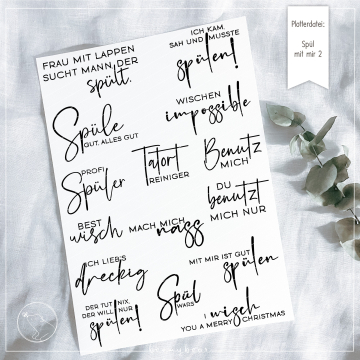 Plotterdatei:
Spül
mit mir 2
FRAU MIT LAPPEN
SUCHT MANN, DER
spült.
ICH KAM,
SAH UND MUSSTE
spülen!
WISCHEN
impossible
Spüle
GUT, ALLES GUT
Tatort
REINIGER
Benutz
MICH
PROFI
Spüler
DU
benutzt
MICH NUR
BEST
wisch
MACH MICH
nass
ICH LIEB'S
dreckig
MIT MIR IST GUT
spülen
DER TUT NIX,
DER WILL NUR
spülen!
Spül
WARS
I wisch
YOU A MERRY CHRISTMAS